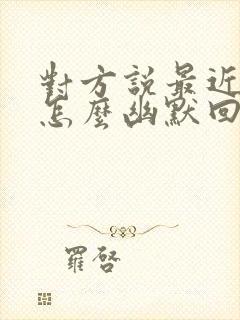 對方說最近
怎麼幽默回
羅啓